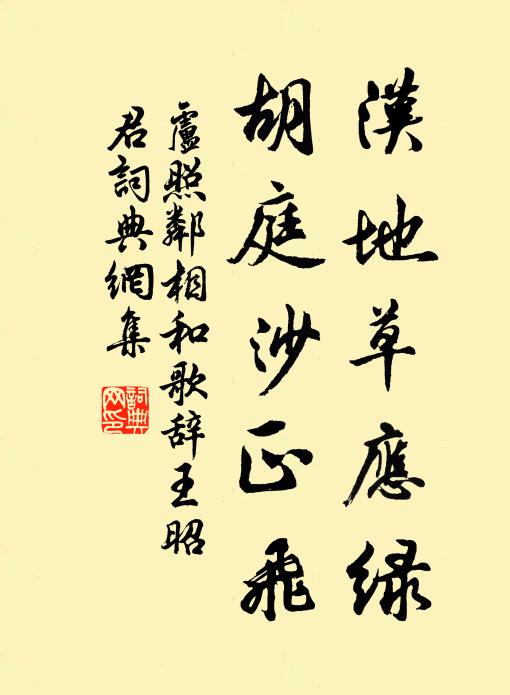 漢地草應緑
胡庭沙正飛
盧照鄰相和歌辞王昭
君詞典網集
詞典
网印